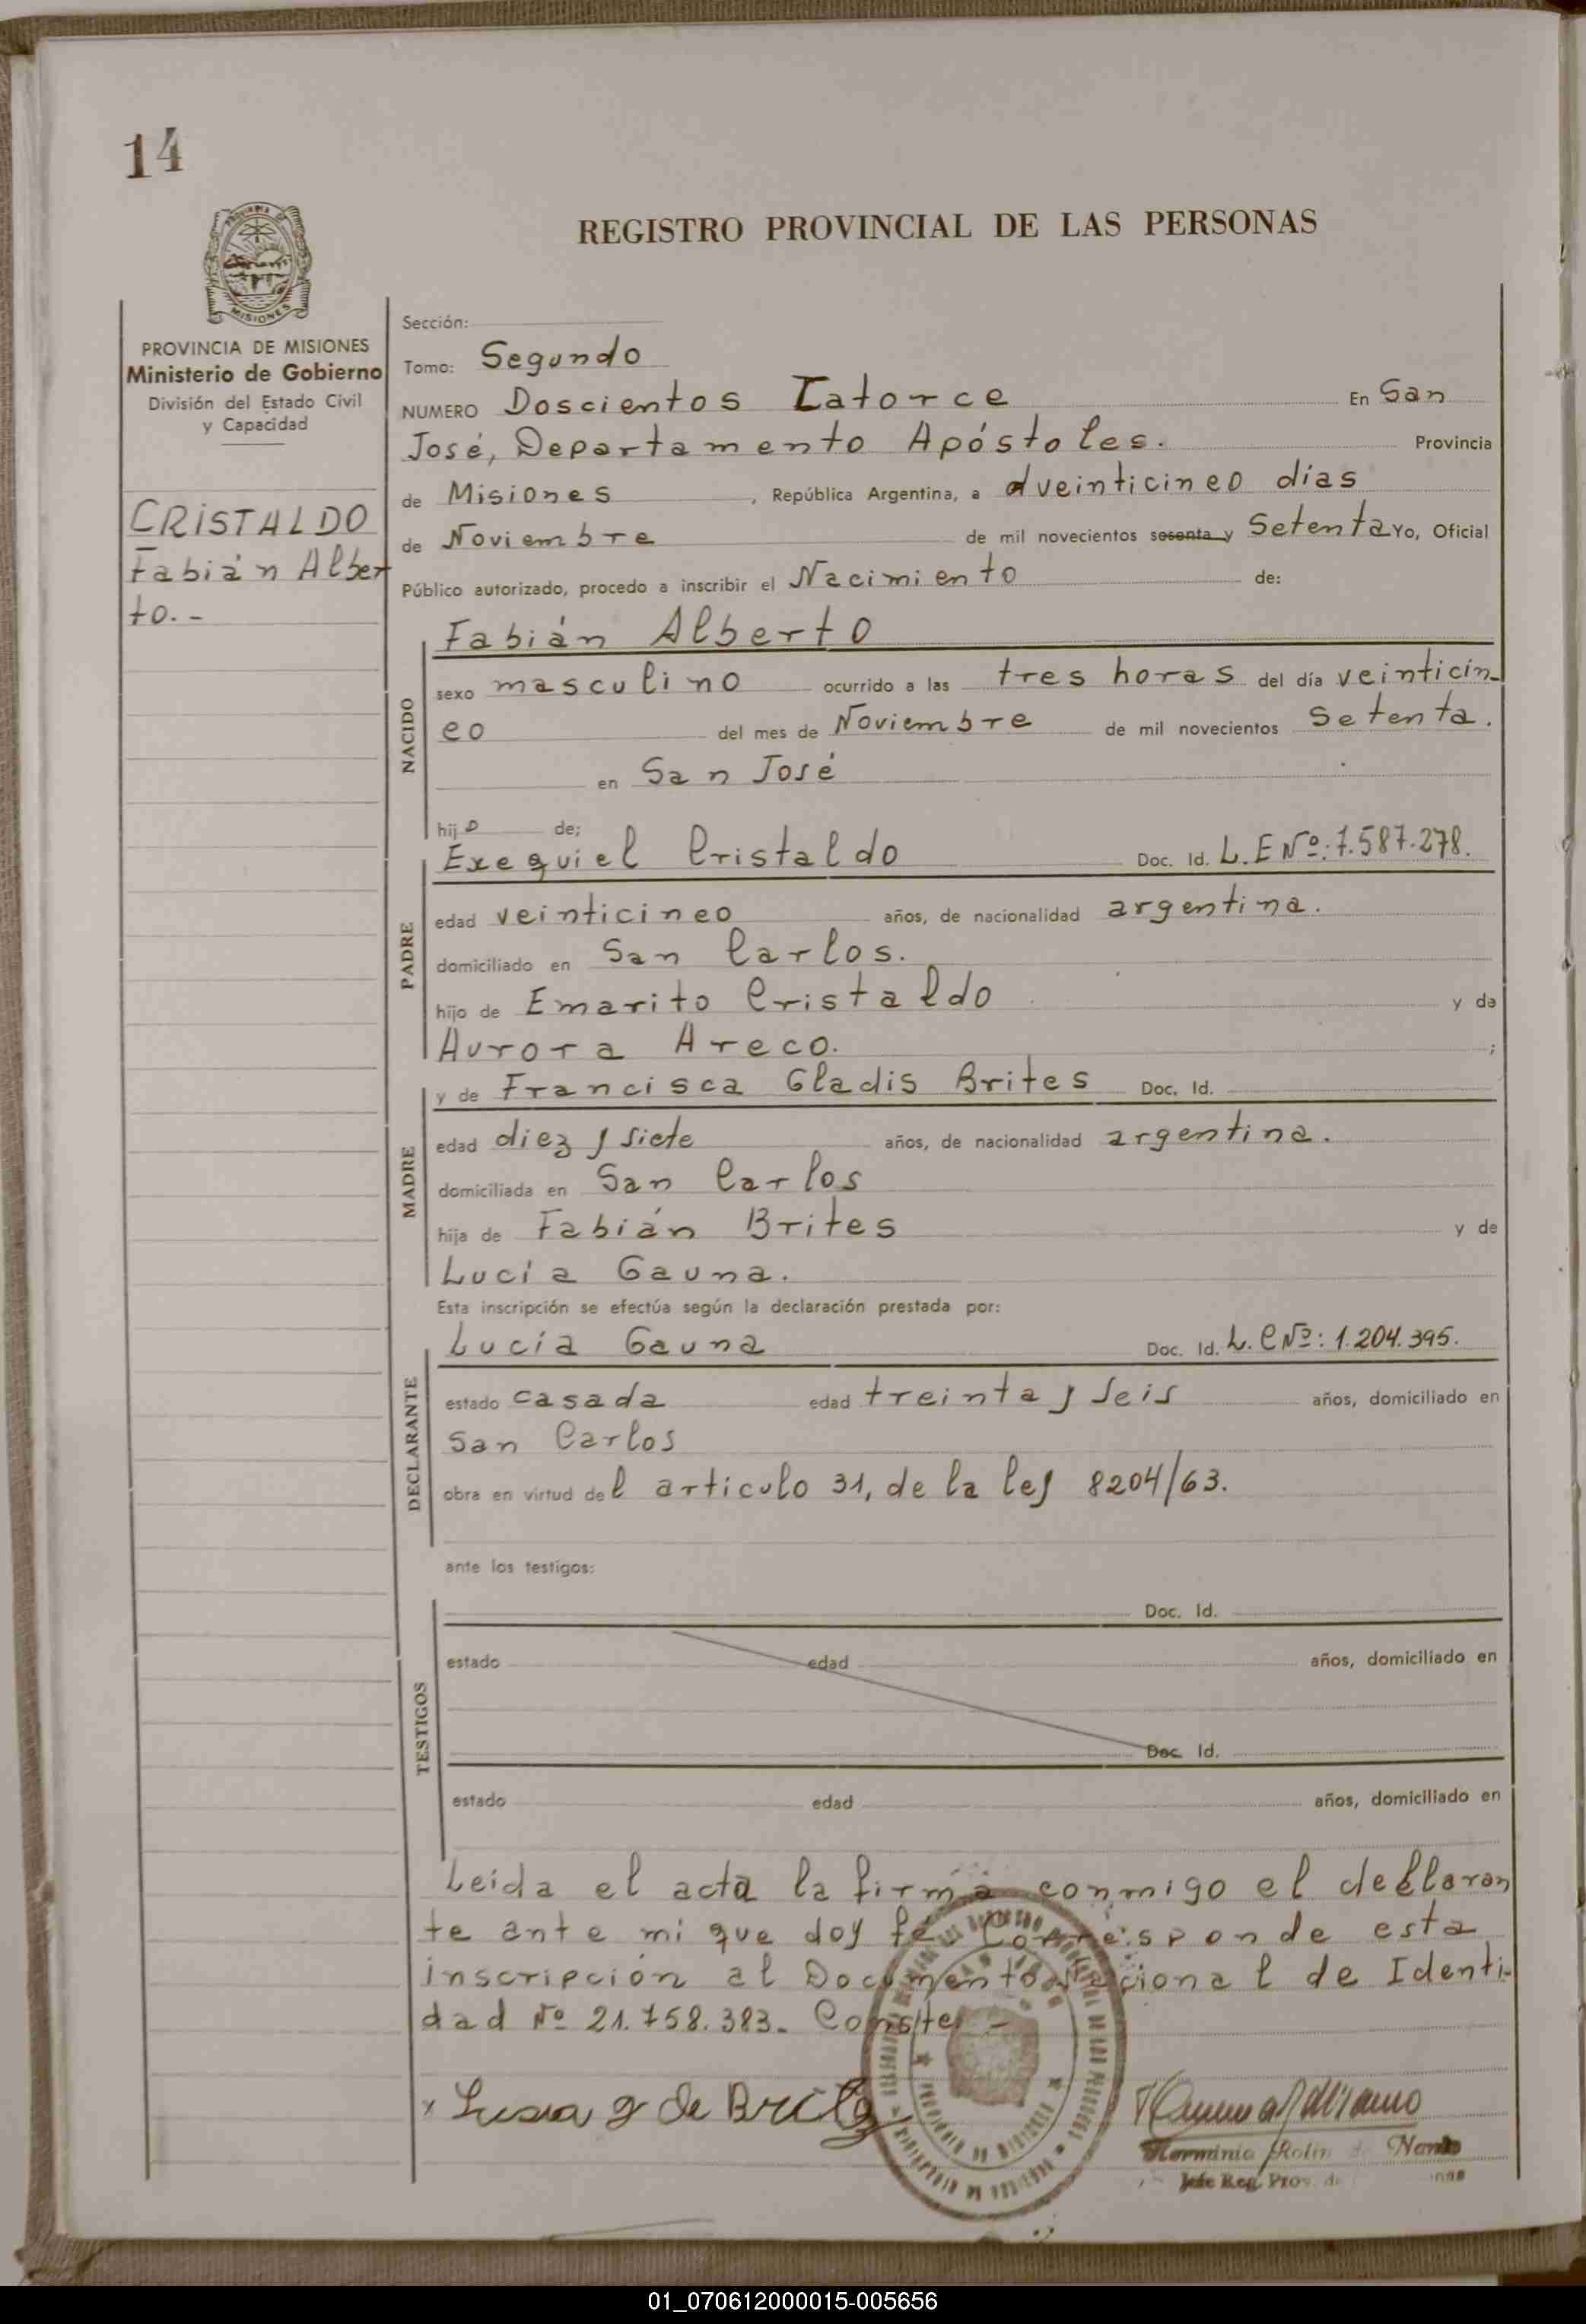 14
REGISTRO PROVINCIAL DE LAS PERSONAS
MISIONES
PROVINCIA DE MISIONES
Ministerio de Gobierno
División del Estado Civil
y Capacidad
CRISTALDO
Fabián Alber
to.-
Sección:
Tomo: Segundo
NUMERO Doscientos Catorce En San
José, Departamento Apóstoles. Provincia
de Misiones, República Argentina, a veinticinco días
de Noviembre de mil novecientos sesenta y Setenta Yo, Oficial
Público autorizado, procedo a inscribir el Nacimiento de:
Fabián Alberto
NACIDO
sexo masculino ocurrido a las tres horas del día veinticin-
co del mes de Noviembre de mil novecientos setenta.
en San José
hijo de;
Exequiel Cristaldo Doc. Id. L.E Nº: 7.587.278.
PADRE
edad veinticinco años, de nacionalidad argentina.
domiciliado en San Carlos.
hijo de Emarito Cristaldo y de
Aurora Areco. ;
y de Francisca Gladis Brites Doc. Id.
MADRE
edad diez y siete años, de nacionalidad argentina.
domiciliada en San Carlos
hija de Fabián Brites y de
Lucía Gauna.
Esta inscripción se efectúa según la declaración prestada por:
Lucía Gauna Doc. Id. L.C Nº: 1.204.395.
DECLARANTE
estado casada edad treinta y seis años, domiciliado en
San Carlos
obra en virtud del articulo 31, de la ley 8204/63.
ante los testigos:
Doc. Id.
TESTIGOS
estado edad años, domiciliado en
Doc. Id.
estado edad años, domiciliado en
Leída el acta la firma conmigo el declaran
te ante mi que doy fé. Corresponde esta
inscripción al Documento Nacional de Identi-
dad Nº 21.758.383. Conste.-
x Lusia g de Brites
Herminia Rolin de
Jefe Reg. Prov. de
01_070612000015-005656